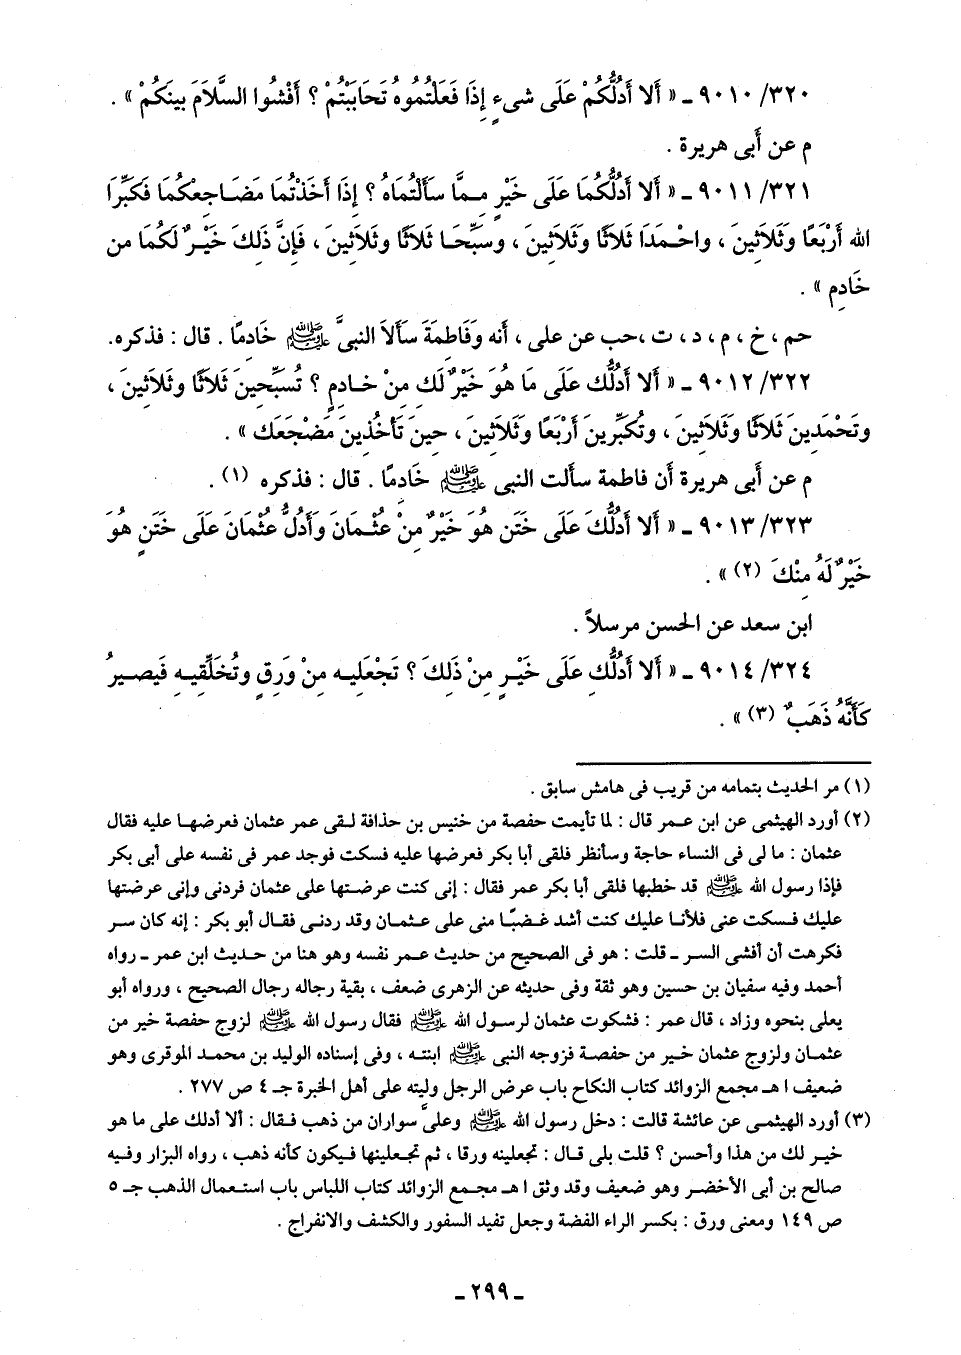 ٩٠١٠/٣٢٠ ـ « أَلا أَدُلُّكُمْ عَلَى شىءٍ إِذَا فَعَلْتُمُوهُ تَحَابَبْتُمْ ؟ أَفْشُوا السَّلاَمَ بينَكُمْ » .
م عن أبى هريرة .
٩٠١١/٣٢١ ـ « أَلا أَدُلُّكُمَا عَلَى خَيْرٍ مِـمَّا سَأَلْتُمَاهُ ؟ إِذَا أَخَذْتُمَا مَضَـاجِعَكُمَا فَكَبِّرَا
الله أَرْبَعًا وَثَلاَثِينَ ، واحْـمَدَا ثَلاثًا وَثَلاَثِينَ ، وسَبِّحَـا ثَلاثًا وثَلاَثِينَ ، فَإِنَّ ذَلِكَ خَيْـرٌ لَكُمَا من
خَادِمٍ » .
حم ، خ ، م ، د ، ت ،حب عن على ، أنه وَفَاطِمَةَ سَأَلاَ النبىَّ ﷺ خَادِمًا . قال : فذكره.
٩٠١٢/٣٢٢ ـ « أَلا أَدُلُّك عَلَى مَا هُوَ خَيْرٌ لَك مِنْ خَـادِمٍ ؟ تُسَبِّحينَ ثَلاَثًا وثَلاَثِينَ ،
وتَحْمَدِينَ ثَلاَثًا وَثَلاَثينَ ، وتُكَبِّرِينَ أَرْبَعًا وَثَلاَثِينَ ، حِينَ تَأْخُذِينَ مَضْجَعَك » .
م عن أبى هريرة أن فاطمة سألت النبى ﷺ خَادِمًا . قال : فذكره (١) .
٩٠١٣/٣٢٣ ـ « أَلا أَدُلُّكَ عَلَى خَتَن هُوَ خَيْرٌ مِنْ عُثْـمَانَ وَأَدُلُّ عُثْمَانَ عَلَى خَتَنٍ هُوَ
خَيْرٌ لَهُ مِنْكَ (٢) » .
ابن سعد عن الحسن مرسلاً .
٩٠١٤/٣٢٤ ـ « أَلا أَدُلُّكِ عَلَى خَيْـرٍ مِنْ ذَلِكَ ؟ تَجْعَلِيـهِ مِنْ وَرِقٍ وتُخَلِّقِيـهِ فَيَصيـرُ
كَأَنَّهُ ذَهَبٌ (٣) » .
(١) مر الحديث بتمامه من قريب فى هامش سابق .
(٢) أورد الهيثمى عن ابن عـمر قال : لما تأيمت حفصة من خنيس بن حذافة لـقى عمر عثمان فعرضهـا عليه فقال
عثمان : ما لى فى النساء حاجة وسأنظر فلقى أبا بكر فعرضها عليه فسكت فوجد عمر فى نفسه على أبى بكر
فإذا رسول الله ﷺ قد خطبها فلقى أبا بكر عمر فقال : إنى كنت عرضتها على عثمان فردنى وإنى عرضتها
عليك فـسكت عنى فلأنا عليك كنت أشد غـضبًـا منى على عـثمـان وقد ردنى فقـال أبو بكر : إنه كان سر
فكرهت أن أفشى السر ـ قلت : هو فى الصحيح من حديث عمر نفسه وهو هنا من حـديث ابن عمر ـ رواه
أحمد وفيه سفيان بن حسين وهو ثقة وفى حديثه عن الزهرى ضعف ، بقية رجاله رجال الصحيح ، ورواه أبو
يعلى بنحوه وزاد ، قال عمر : فشكوت عثمان لرسـول الله ﷺ فقال رسول الله ﷺ لزوج حفصة خير من
عثمـان ولزوج عثمان خيـر من حفصـة فزوجه النبى ﷺ ابنتـه ، وفى إسناده الوليد بن محمـد الموقرى وهو
ضعيف ا هـ مجمع الزوائد كتاب النكاح باب عرض الرجل وليته على أهل الخبرة جـ ٤ ص ٢٧٧ .
(٣) أورد الهيثمـى عن عائشة قالت : دخل رسول الله ﷺ وعلىَّ سواران من ذهب فـقال : ألا أدلك على ما هو
خيـر لك من هذا وأحسن ؟ قلت بلى قـال : تجعلينه ورقا ، ثم تجـعلينها فـيكون كأنه ذهب ، رواه البزار وفيـه
صالح بن أبى الأخضـر وهو ضعيف وقد وثق ا هـ مجـمع الزوائد كتاب اللباس باب استـعمال الذهب جـ ٥
ص ١٤٩ ومعنى ورق : بكسر الراء الفضة وجعل تفيد السفور والكشف والانفراج .
ـ ٢٩٩ ـ